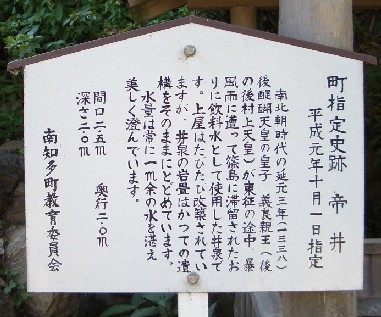 町指定史跡 帝井
平成元年十月一日指定
南北朝時代の延元三年(一三三八)
後醍醐天皇の皇子、義良親王(後
の後村上天皇)が東征の途中、暴
風雨に遭って篠島に滞留されたお
りに飲料水として使用した井泉で
す。上屋はたびたび改築されてい
ますが、井泉の岩畳はかつての遺
構をそのままにとどめています。
水量は常に一m余の水を湛え
美しく澄んでいます。
間口二.五m 奥行二.〇m
深さ二.〇m
南知多町教育委員会